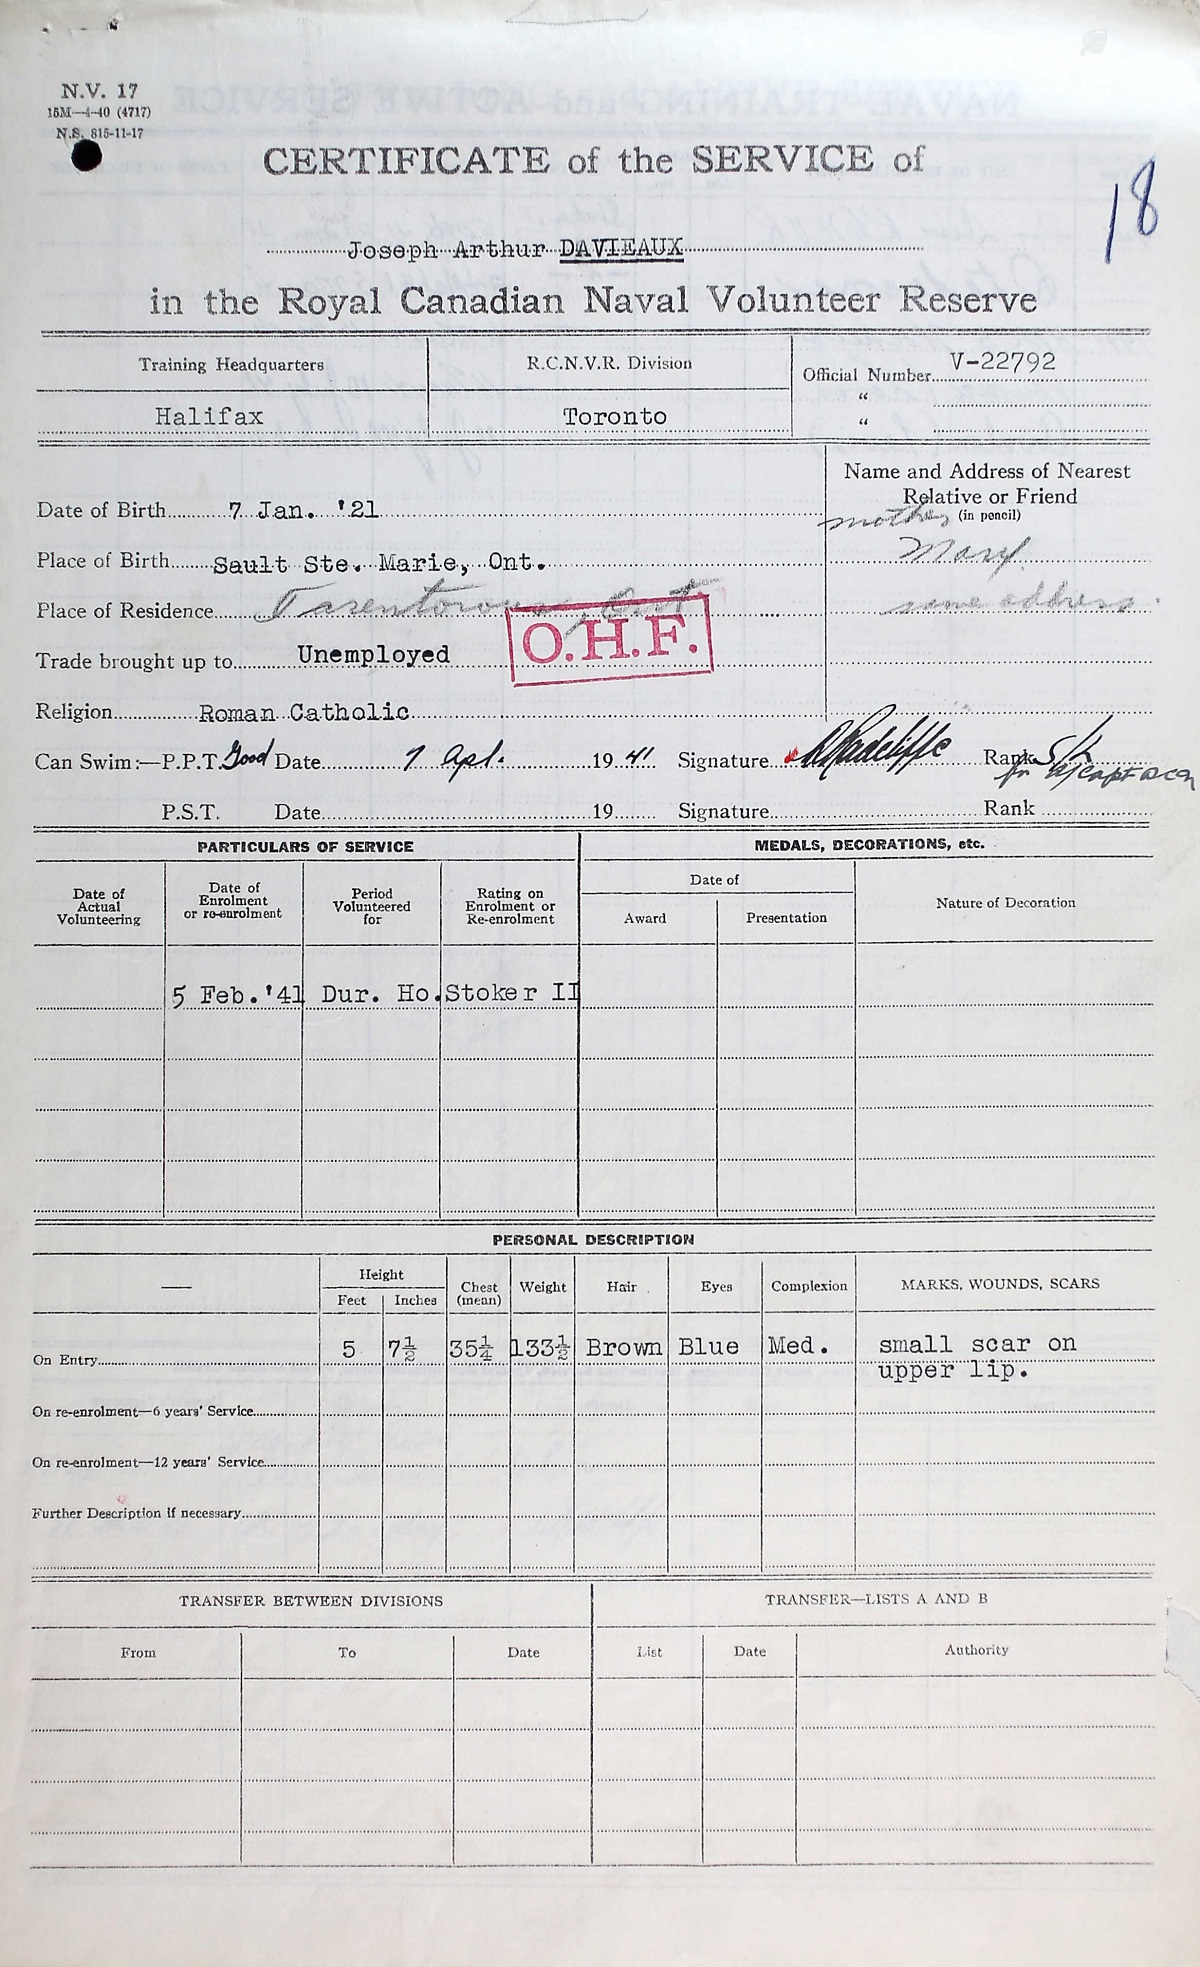 N.V. 17
15M—4-40 (4717)
N.S. 815-11-17
CERTIFICATE of the SERVICE of
18
Joseph Arthur DAVIEAUX
in the Royal Canadian Naval Volunteer Reserve
Training Headquarters
R.C.N.V.R. Division
Official Number V-22792
"
"
Halifax
Toronto
Name and Address of Nearest
Relative or Friend
(in pencil)
mother
Mary
same address.
Date of Birth 7 Jan. '21
Place of Birth Sault Ste. Marie, Ont.
Place of Residence Tarentorous, Ont
Trade brought up to Unemployed
O.H.F.
Religion Roman Catholic
Can Swim:—P.P.T. Good Date 7 Apl. 19 41 Signature Radcliffe Rank S/L
for a/capt RCN
P.S.T. Date 19 Signature Rank
PARTICULARS OF SERVICE
MEDALS, DECORATIONS, etc.
Date of
Actual
Volunteering
Date of
Enrolment
or re-enrolment
Period
Volunteered
for
Rating on
Enrolment or
Re-enrolment
Date of
Award
Presentation
Nature of Decoration
5 Feb. '41 Dur. Ho. Stoker II
PERSONAL DESCRIPTION
—
Height
Feet Inches
Chest
(mean)
Weight
Hair
Eyes
Complexion
MARKS, WOUNDS, SCARS
On Entry 5 7½ 35¼ 133½ Brown Blue Med. small scar on
upper lip.
On re-enrolment—6 years' Service
On re-enrolment—12 years' Service
Further Description if necessary
TRANSFER BETWEEN DIVISIONS
TRANSFER—LISTS A AND B
From To Date List Date Authority